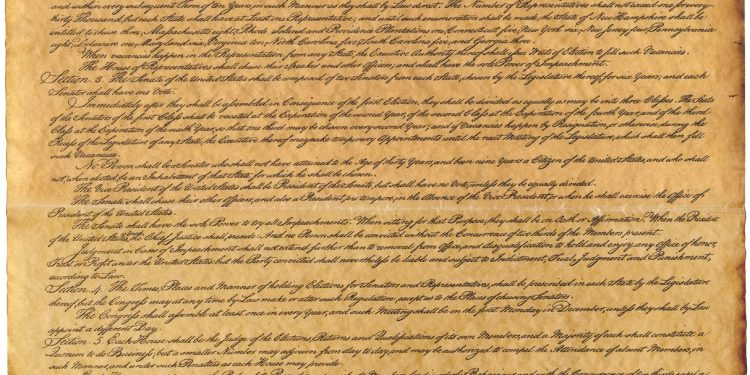 and within every subsequent Term of ten Years, in such Manner as they shall by Law direct. The Number of Representatives shall not exceed one for every
thirty Thousand, but each State shall have at Least one Representative; and until such enumeration shall be made, the State of New Hampshire shall be
entitled to chuse three, Massachusetts eight, Rhode Island and Providence Plantations one, Connecticut five, New York six, New Jersey four, Pennsylvania
eight, Delaware one, Maryland six, Virginia ten, North Carolina five, South Carolina five, and Georgia three.
When vacancies happen in the Representation from any State, the Executive Authority thereof shall issue Writs of Election to fill such Vacancies.
The House of Representatives shall chuse their Speaker and other Officers; and shall have the sole Power of Impeachment.
Section. 3. The Senate of the United States shall be composed of two Senators from each State, chosen by the Legislature thereof, for six Years; and each
Senator shall have one Vote.
Immediately after they shall be assembled in Consequence of the first Election, they shall be divided as equally as may be into three Classes. The Seats
of the Senators of the first Class shall be vacated at the Expiration of the second Year, of the second Class at the Expiration of the fourth Year, and of the third
Class at the Expiration of the sixth Year, so that one third may be chosen every second Year; and if Vacancies happen by Resignation, or otherwise, during the
Recess of the Legislature of any State, the Executive thereof may make temporary Appointments until the next Meeting of the Legislature, which shall then fill
such Vacancies.
No Person shall be a Senator who shall not have attained to the Age of thirty Years, and been nine Years a Citizen of the United States, and who shall
not, when elected, be an Inhabitant of that State for which he shall be chosen.
The Vice President of the United States shall be President of the Senate, but shall have no Vote, unless they be equally divided.
The Senate shall chuse their other Officers, and also a President pro tempore, in the Absence of the Vice President, or when he shall exercise the Office of
President of the United States.
The Senate shall have the sole Power to try all Impeachments. When sitting for that Purpose, they shall be on Oath or Affirmation. When the President
of the United States is tried, the Chief Justice shall preside: And no Person shall be convicted without the Concurrence of two thirds of the Members present.
Judgment in Cases of Impeachment shall not extend further than to removal from Office, and disqualification to hold and enjoy any Office of honor,
Trust or Profit under the United States: but the Party convicted shall nevertheless be liable and subject to Indictment, Trial, Judgment and Punishment,
according to Law.
Section. 4. The Times, Places and Manner of holding Elections for Senators and Representatives, shall be prescribed in each State by the Legislature
thereof; but the Congress may at any time by Law make or alter such Regulations, except as to the Places of chusing Senators.
The Congress shall assemble at least once in every Year, and such Meeting shall be on the first Monday in December, unless they shall by Law
appoint a different Day.
Section. 5. Each House shall be the Judge of the Elections, Returns and Qualifications of its own Members, and a Majority of each shall constitute a
Quorum to do Business; but a smaller Number may adjourn from day to day, and may be authorized to compel the Attendance of absent Members, in
such Manner, and under such Penalties as each House may provide.